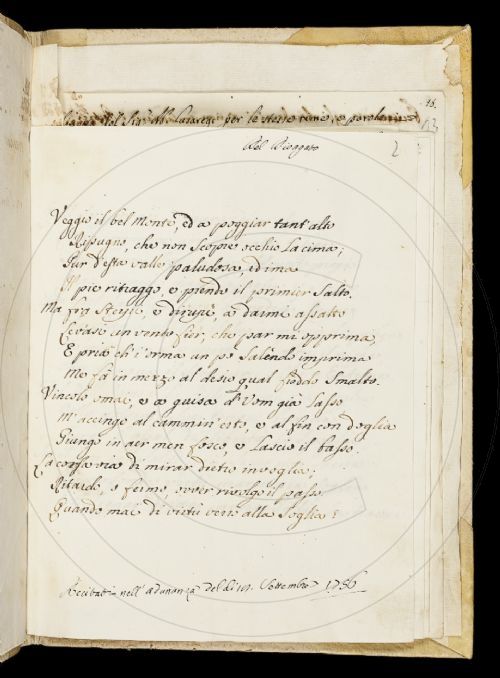 del Sig.r Ab. Lazareni per le stesse rime, e parole
15.
2
Del Pioggato
Veggio il bel Monte, ed a poggiar tant'alto
Ripugno, che non scopre occhio la cima;
Pur d'esta valle paludosa, ed ima
Il pie ritraggo, e prendo il primier salto.
Ma fra sterpi, e dirupi, a darmi assalto
Levasi un vento fier, che par mi opprima,
E pria ch'i orma un po salendo imprima
Me fa in mezzo al desio qual freddo smalto.
Vincolo omai, e a guisa d'Uom già lasso
M'accingo al cammin'esto, e al fin con doglia
Giungo in aer men fosco, e lascio il basso.
La corsa via di mirar dietro invoglia;
Ritardo, e fermo, over rivolgo il passo
Quando mai di virtù verrò alla soglia?
Recitati nell'adunanza del dì Settembre 1756